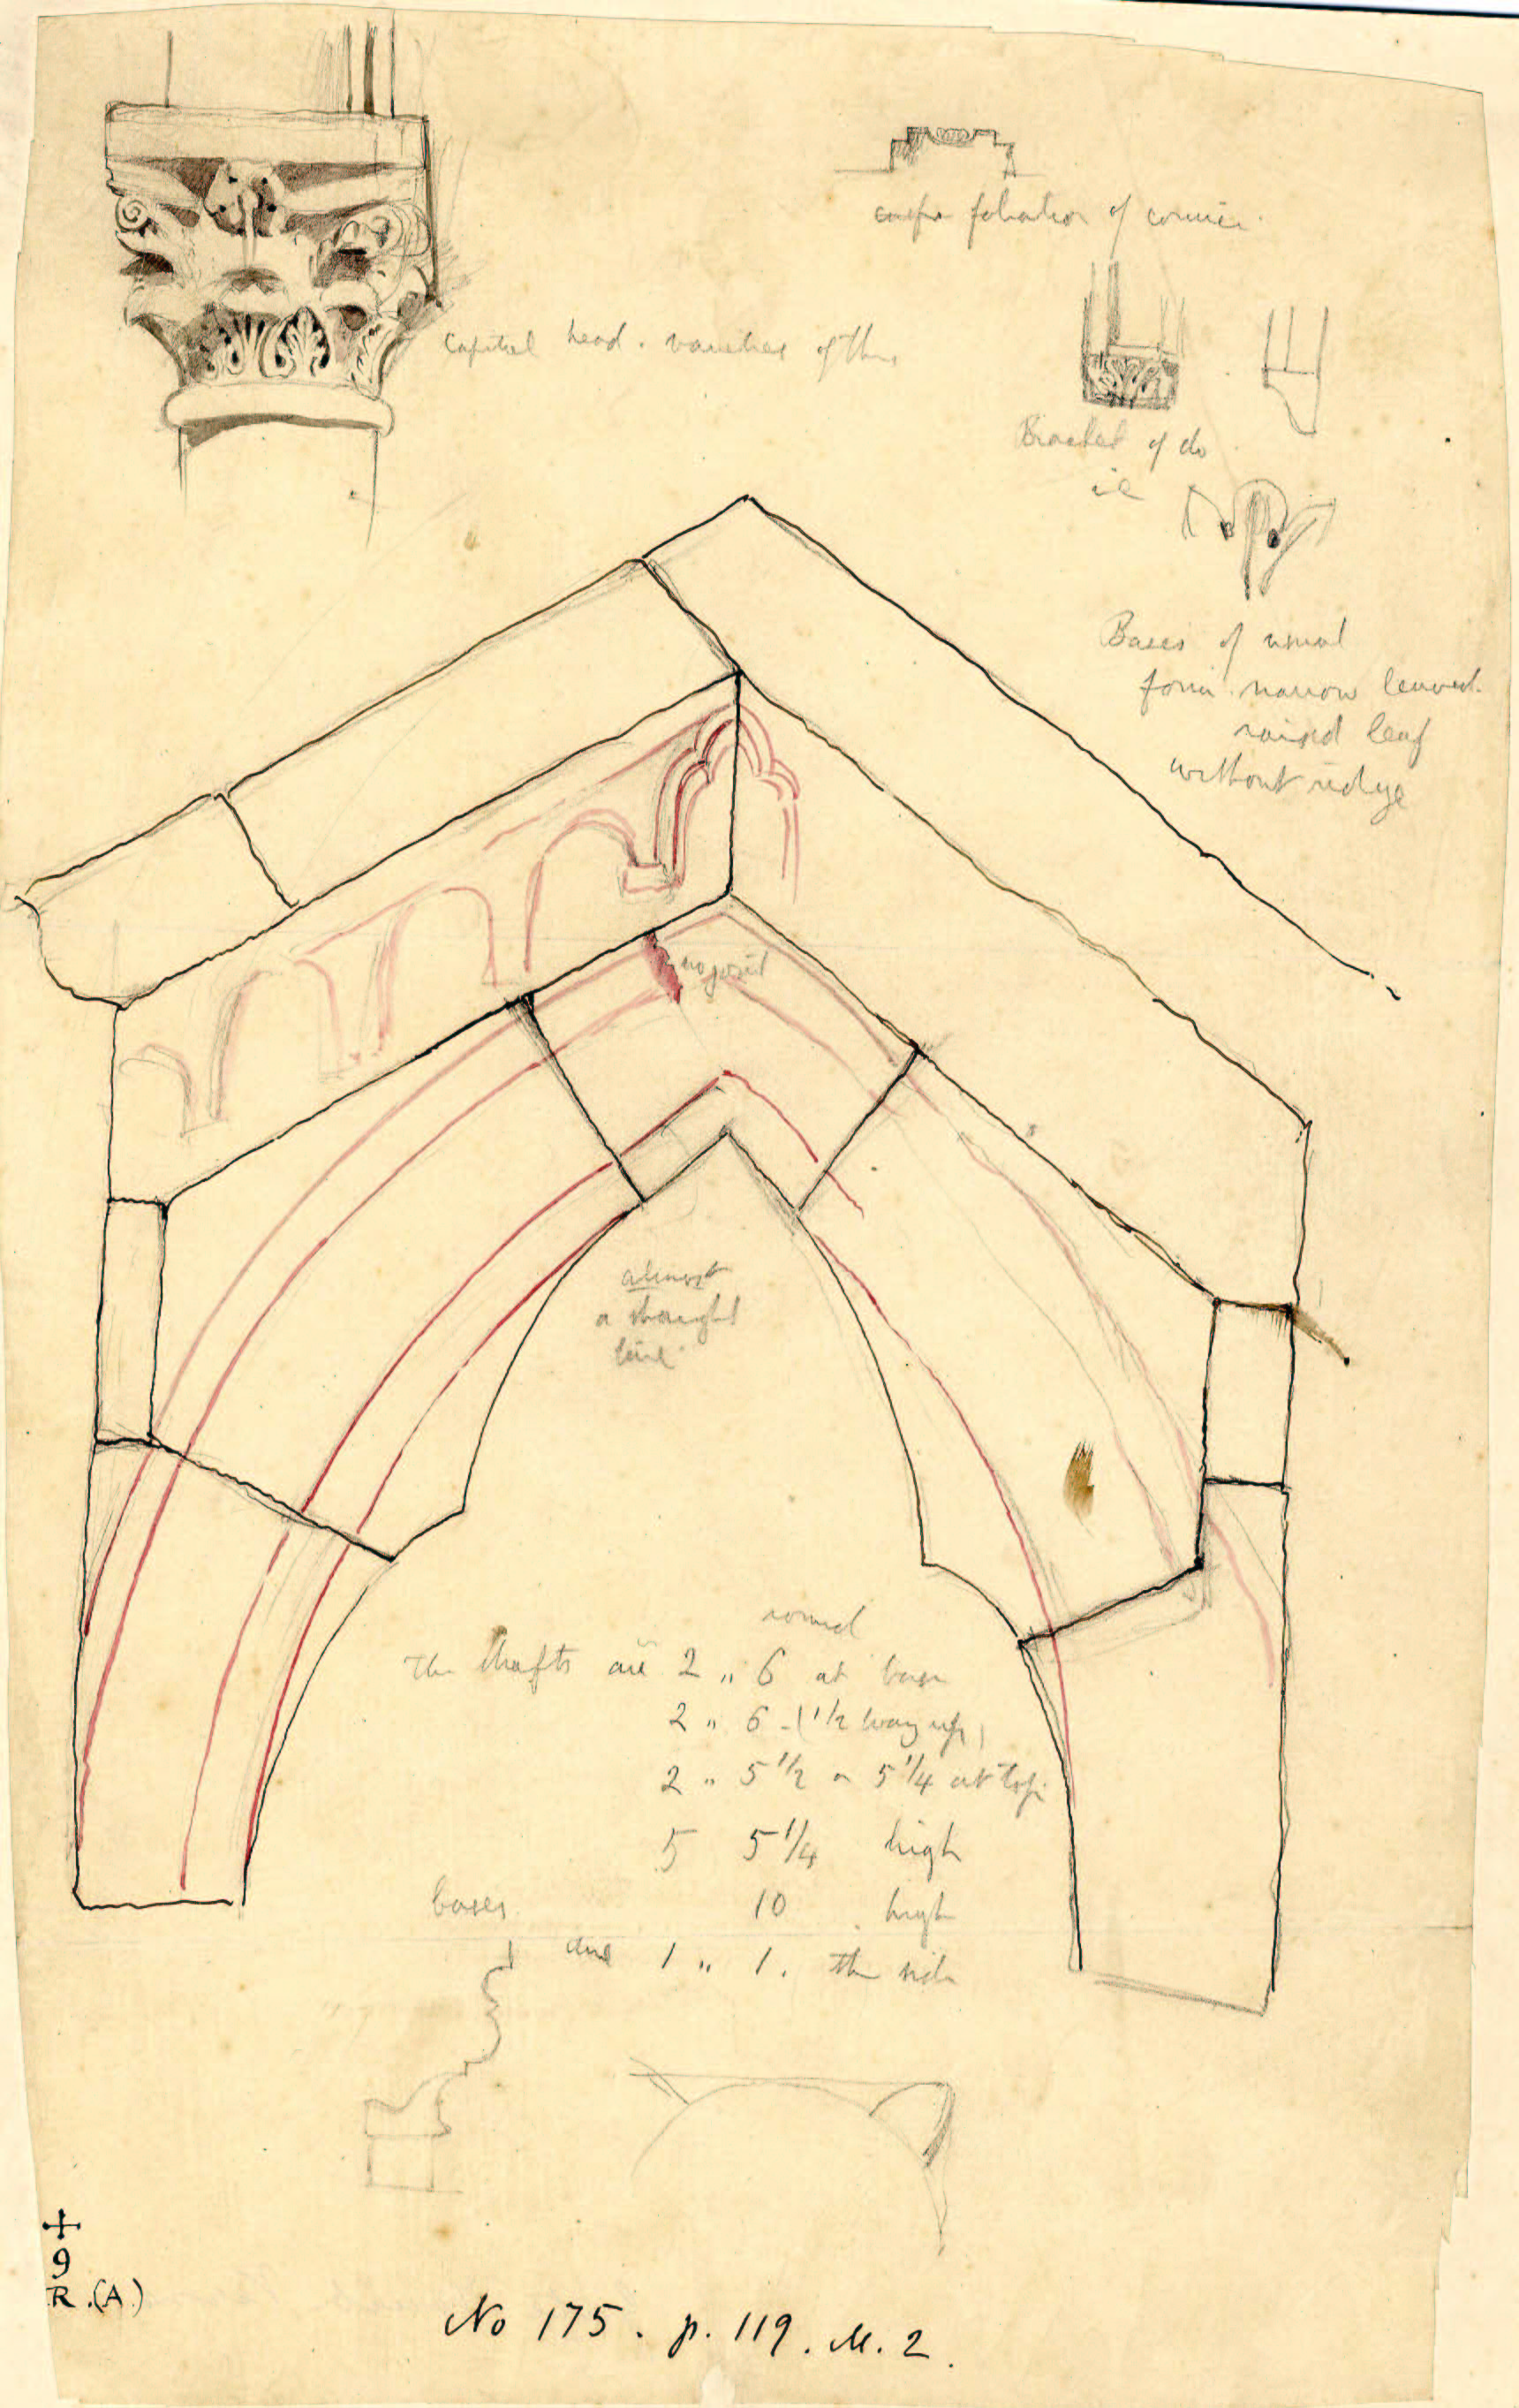 foliation of cornice.
Capital head. varieties of this
Bracket of do
i e
Bases of usual
form. narrow leaved.
raised leaf
without ridge
no joint
almost
a straight
line.
round
The shafts are 2 " 6 at base
2 " 6 - (1/2 way up)
2 " 5 1/2 or 5 1/4 at top.
5 5 1/4 high
bases 10 . high
and 1 " 1. the side
9
R.(A)
No 175. p. 119. M. 2.